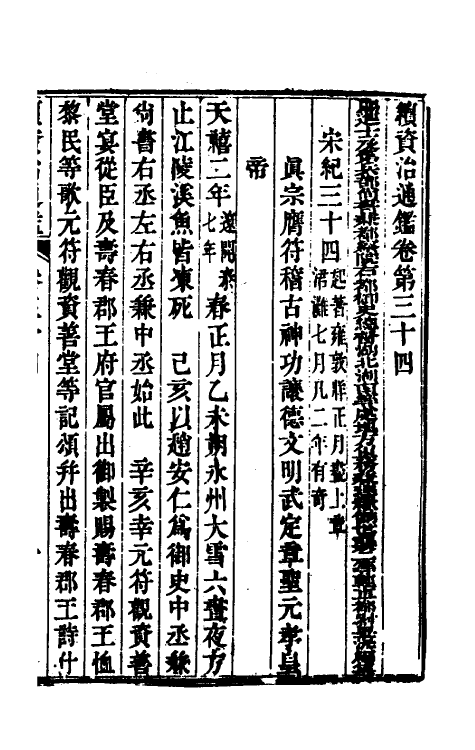 續資治通鑑卷第三十四
都察院右都御史總督湖北湖南等處地方軍務
宋紀三十四 起著雍敦牂正月盡上章涒灘七月凡二年有奇
眞宗膺符稽古神功讓德文明武定章聖元孝皇
帝
天禧二年 遼開泰七年 春正月乙未朔永州大雪六晝夜方
止江陵溪魚皆凍死 己亥以趙安仁爲御史中丞兼
尙書右丞左右丞兼中丞始此 辛亥幸元符觀資善
堂宴從臣及壽春郡王府官屬出御製賜壽春郡王恤
黎民等歌元符觀資善堂等記頌幷出壽春郡王詩什